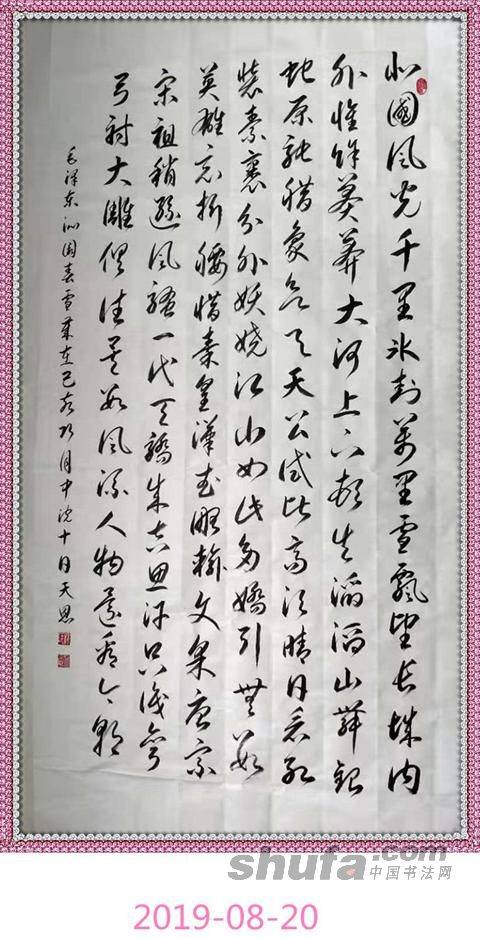 北國风光千里冰封萬里雪飘望长城内
外惟馀莽莽大河上下顿失滔滔山舞银
蛇原驰腊象欲与天公试比高须晴日看红
装素裹分外妖娆江山如此多嬌引無数
英雄竞折腰惜秦皇漢武略输文采唐宗
宋祖稍逊风骚一代天骄成吉思汗只识弯
弓射大雕俱往矣数风流人物还看今朝
毛泽东沁园春雪岁在己亥月中浣十日天恩
shufa.com
中国书法网
2019-08-20